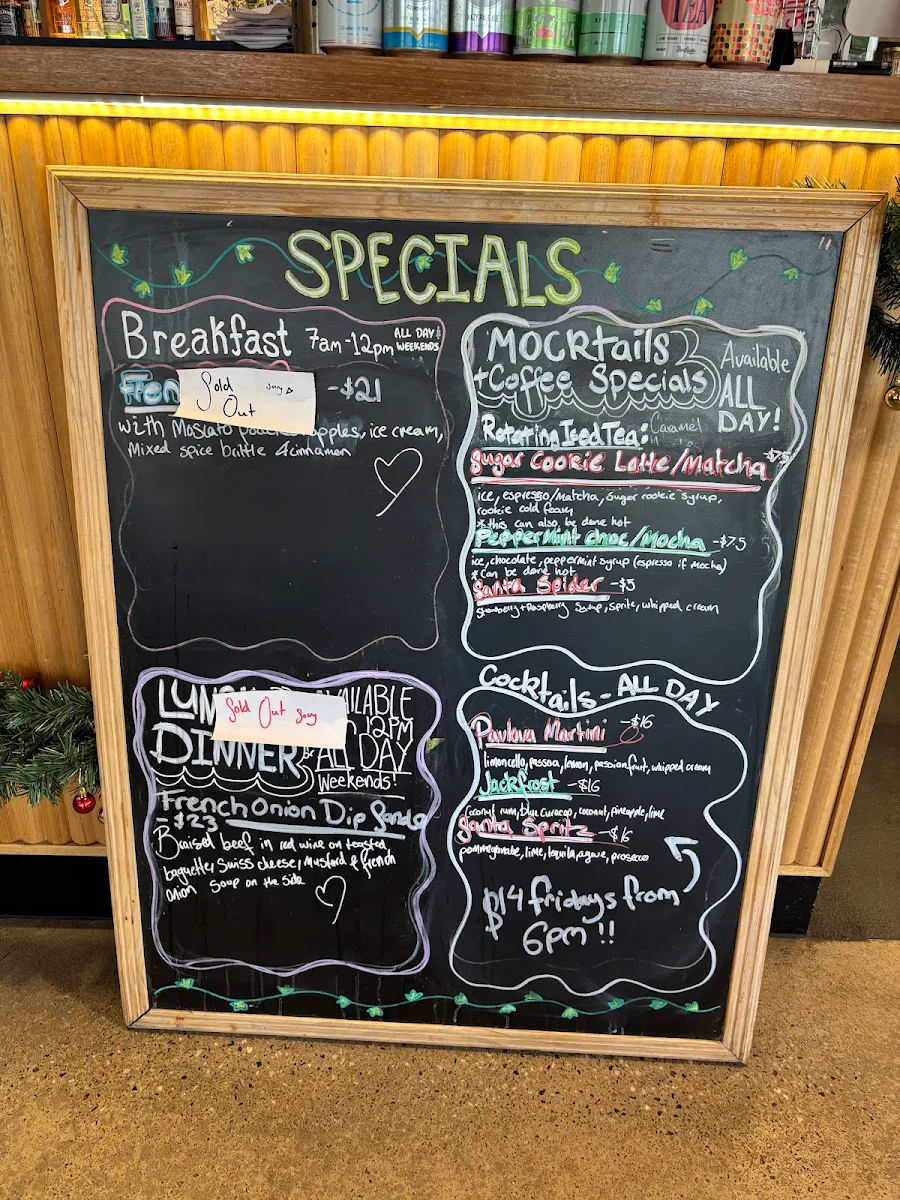 SPECIALS
Breakfast 7am-12pm ALL DAY
WEEKENDS
Sold
Out
Sorry
-$21
with Moscato apples, ice cream,
Mixed spice brittle & cinnamon
MOCKtails
+Coffee Specials
Available
ALL
DAY!
Rotating Iced Tea: Caramel
Sugar Cookie Latte/Matcha
ice, espresso/Matcha, Sugar cookie syrup,
cookie cold foam
*this can also be done hot
Peppermint choc/Mocha -$7.5
ice, chocolate, peppermint syrup (espresso if Mocha)
*Can be done hot
Santa Spider -$5
Strawberry + Raspberry Syrup, Sprite, whipped cream
Sold Out Sorry
DINNER
12PM
ALL DAY
Weekends!
French Onion Dip Sando
- $23
Braised beef in red wine on toasted
baguette, Swiss cheese, mustard & french
onion soup on the side
Cocktails - ALL DAY
Pavlova Martini -$16
limoncello, passoa, lemon, passionfruit, whipped cream
Jackfrost -$16
Coconut rum, Blue Curacao, coconut, pineapple, lime
Santa Spritz -$16
pommegranate, lime, tequila, agave, prosecco
$14 fridays from
6pm !!